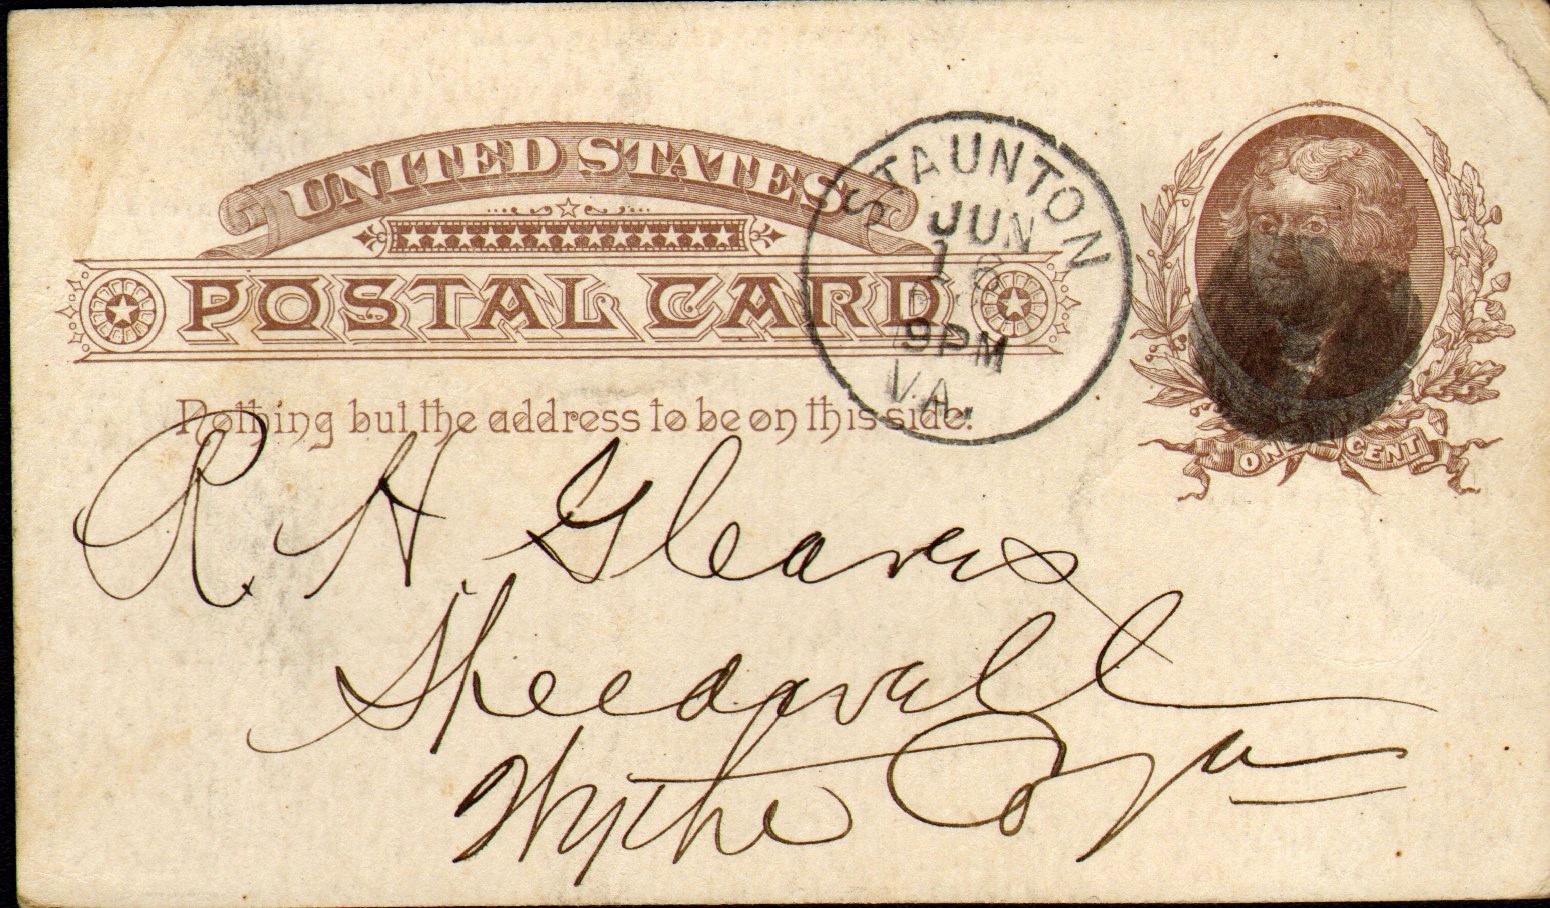 UNITED STATES
POSTAL CARD
STAUNTON
JUN
16
9PM
VA.
ONE CENT
Nothing but the address to be on this side.
R. H. Gleaves
Speedwell
Wythe Co Va